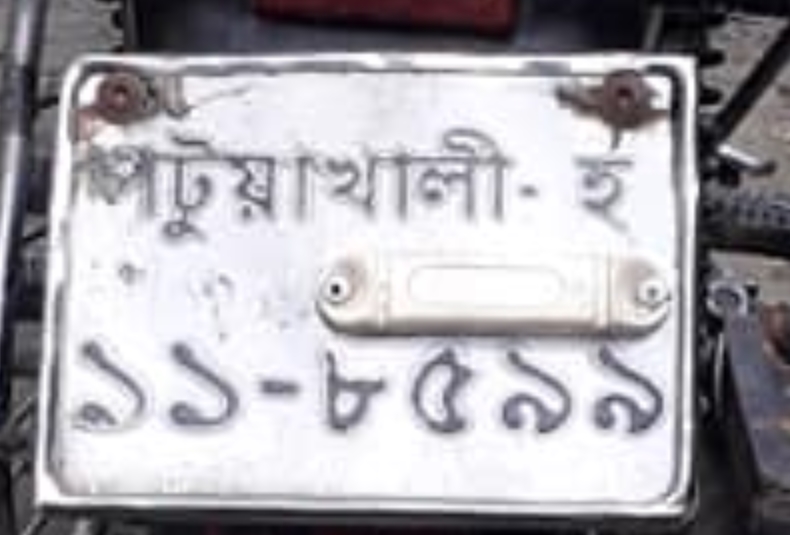 পটুয়াখালী- হ
১১-৮৫৯৯